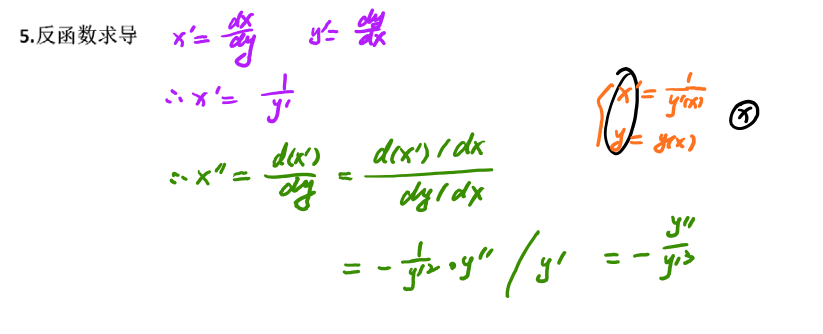 5.反函数求导 x' = dx/dy y' = dy/dx
∴ x' = 1/y'
{ x' = 1/y'(x)
y = y(x)
x
∴ x'' = d(x')/dy = d(x')/dx / dy/dx
= - 1/y'² · y'' / y' = - y''/y'³